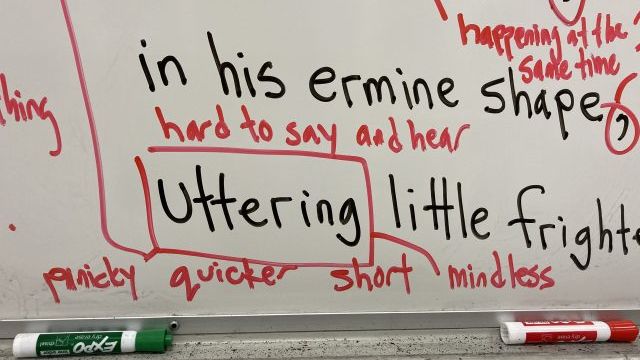 happening at the
same time
thing
in his ermine shape,
hard to say and hear
Uttering little fright
panicky quicker short mindless
EXPO dry erase
dry erase